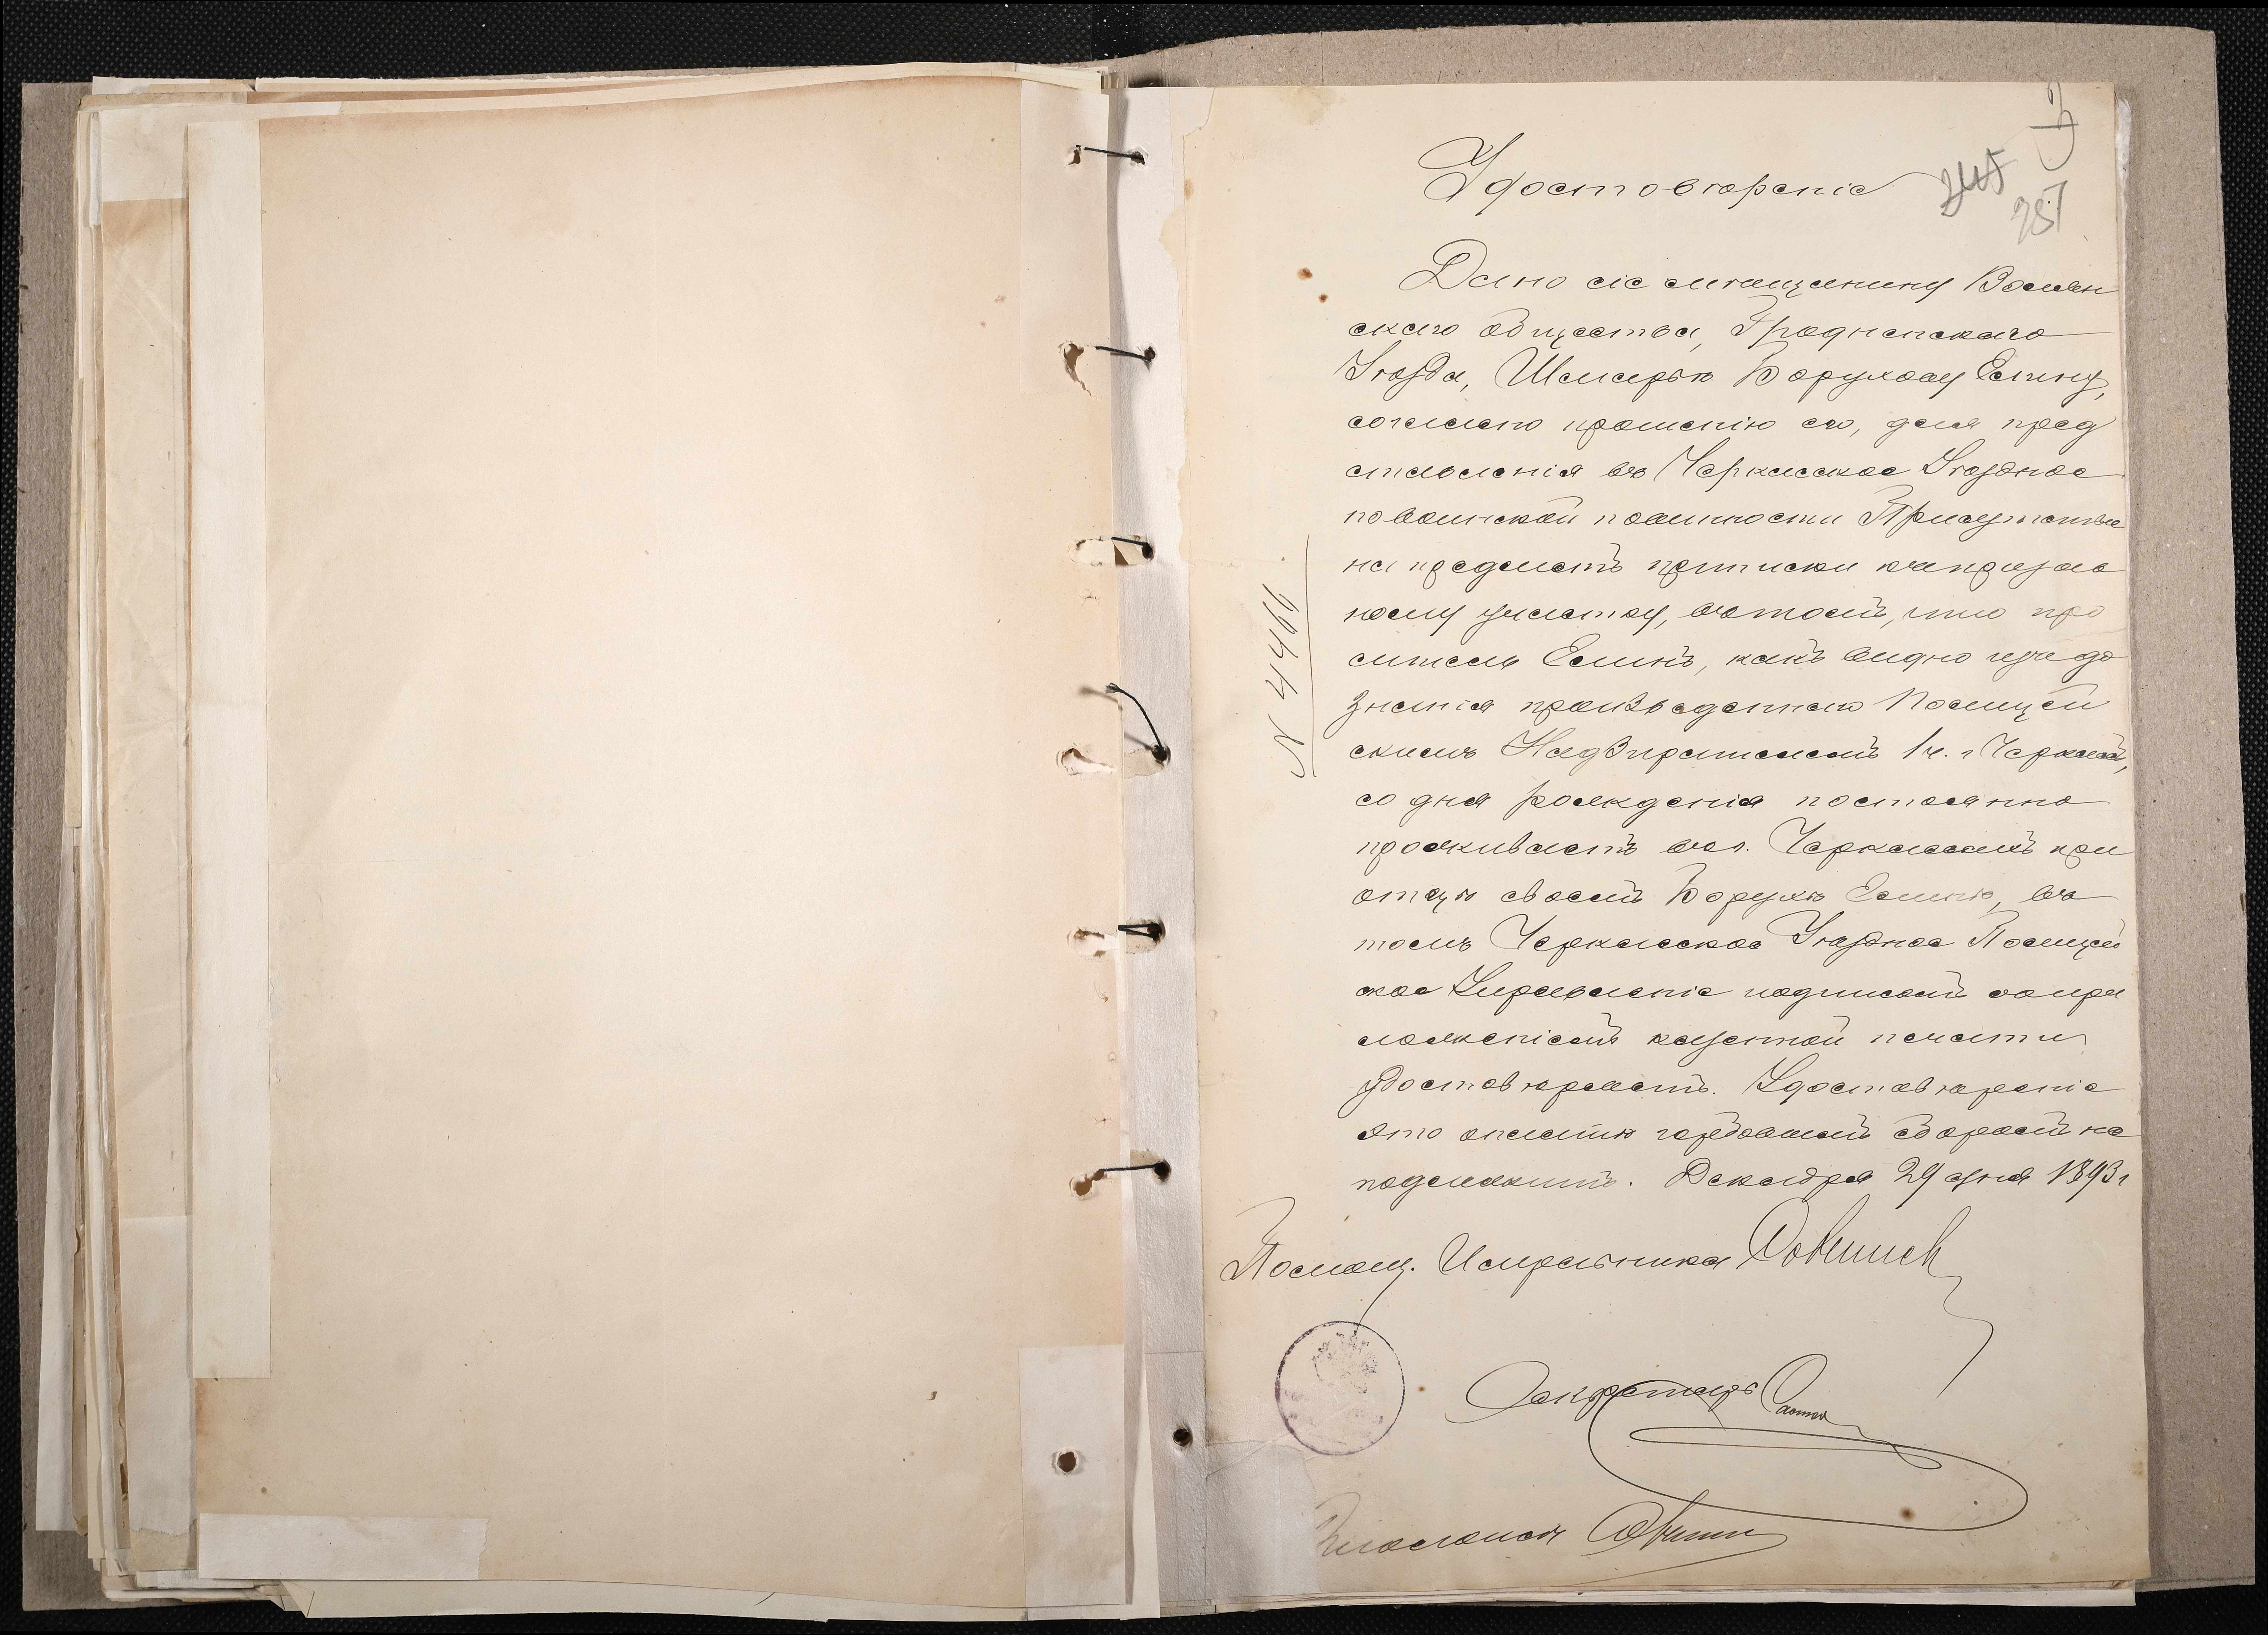 Удостовѣреніе
245
257
Дано сіе мѣщанину Волпян
скаго общества, Гродненскаго
Уѣзда, Шмерко Борухову Елину,
согласно прошенію его, для пред
ставленія въ Черкасское Уѣздное
по воинской повинности Присутствіе
на предметъ приписки къ призыв
ному участку, въ томъ, что про
ситель Елинъ, какъ видно изъ до
знанія произведеннаго Полицей
скимъ Надзирателемъ 1 ч. г. Черкасъ,
со дня рожденія постоянно
проживаетъ въ г. Черкассахъ при
отцѣ своемъ Борухѣ Елинѣ, въ
томъ Черкасское Уѣздное Полицей
ское Управленіе подписомъ съ при
ложеніемъ казенной печати
удостовѣряетъ. Удостовѣреніе
это оплатѣ гербовымъ сборомъ не
подлежитъ. Декабря 29 дня 1893 г
№ 4466
Помощ. Исправника
Секретарь